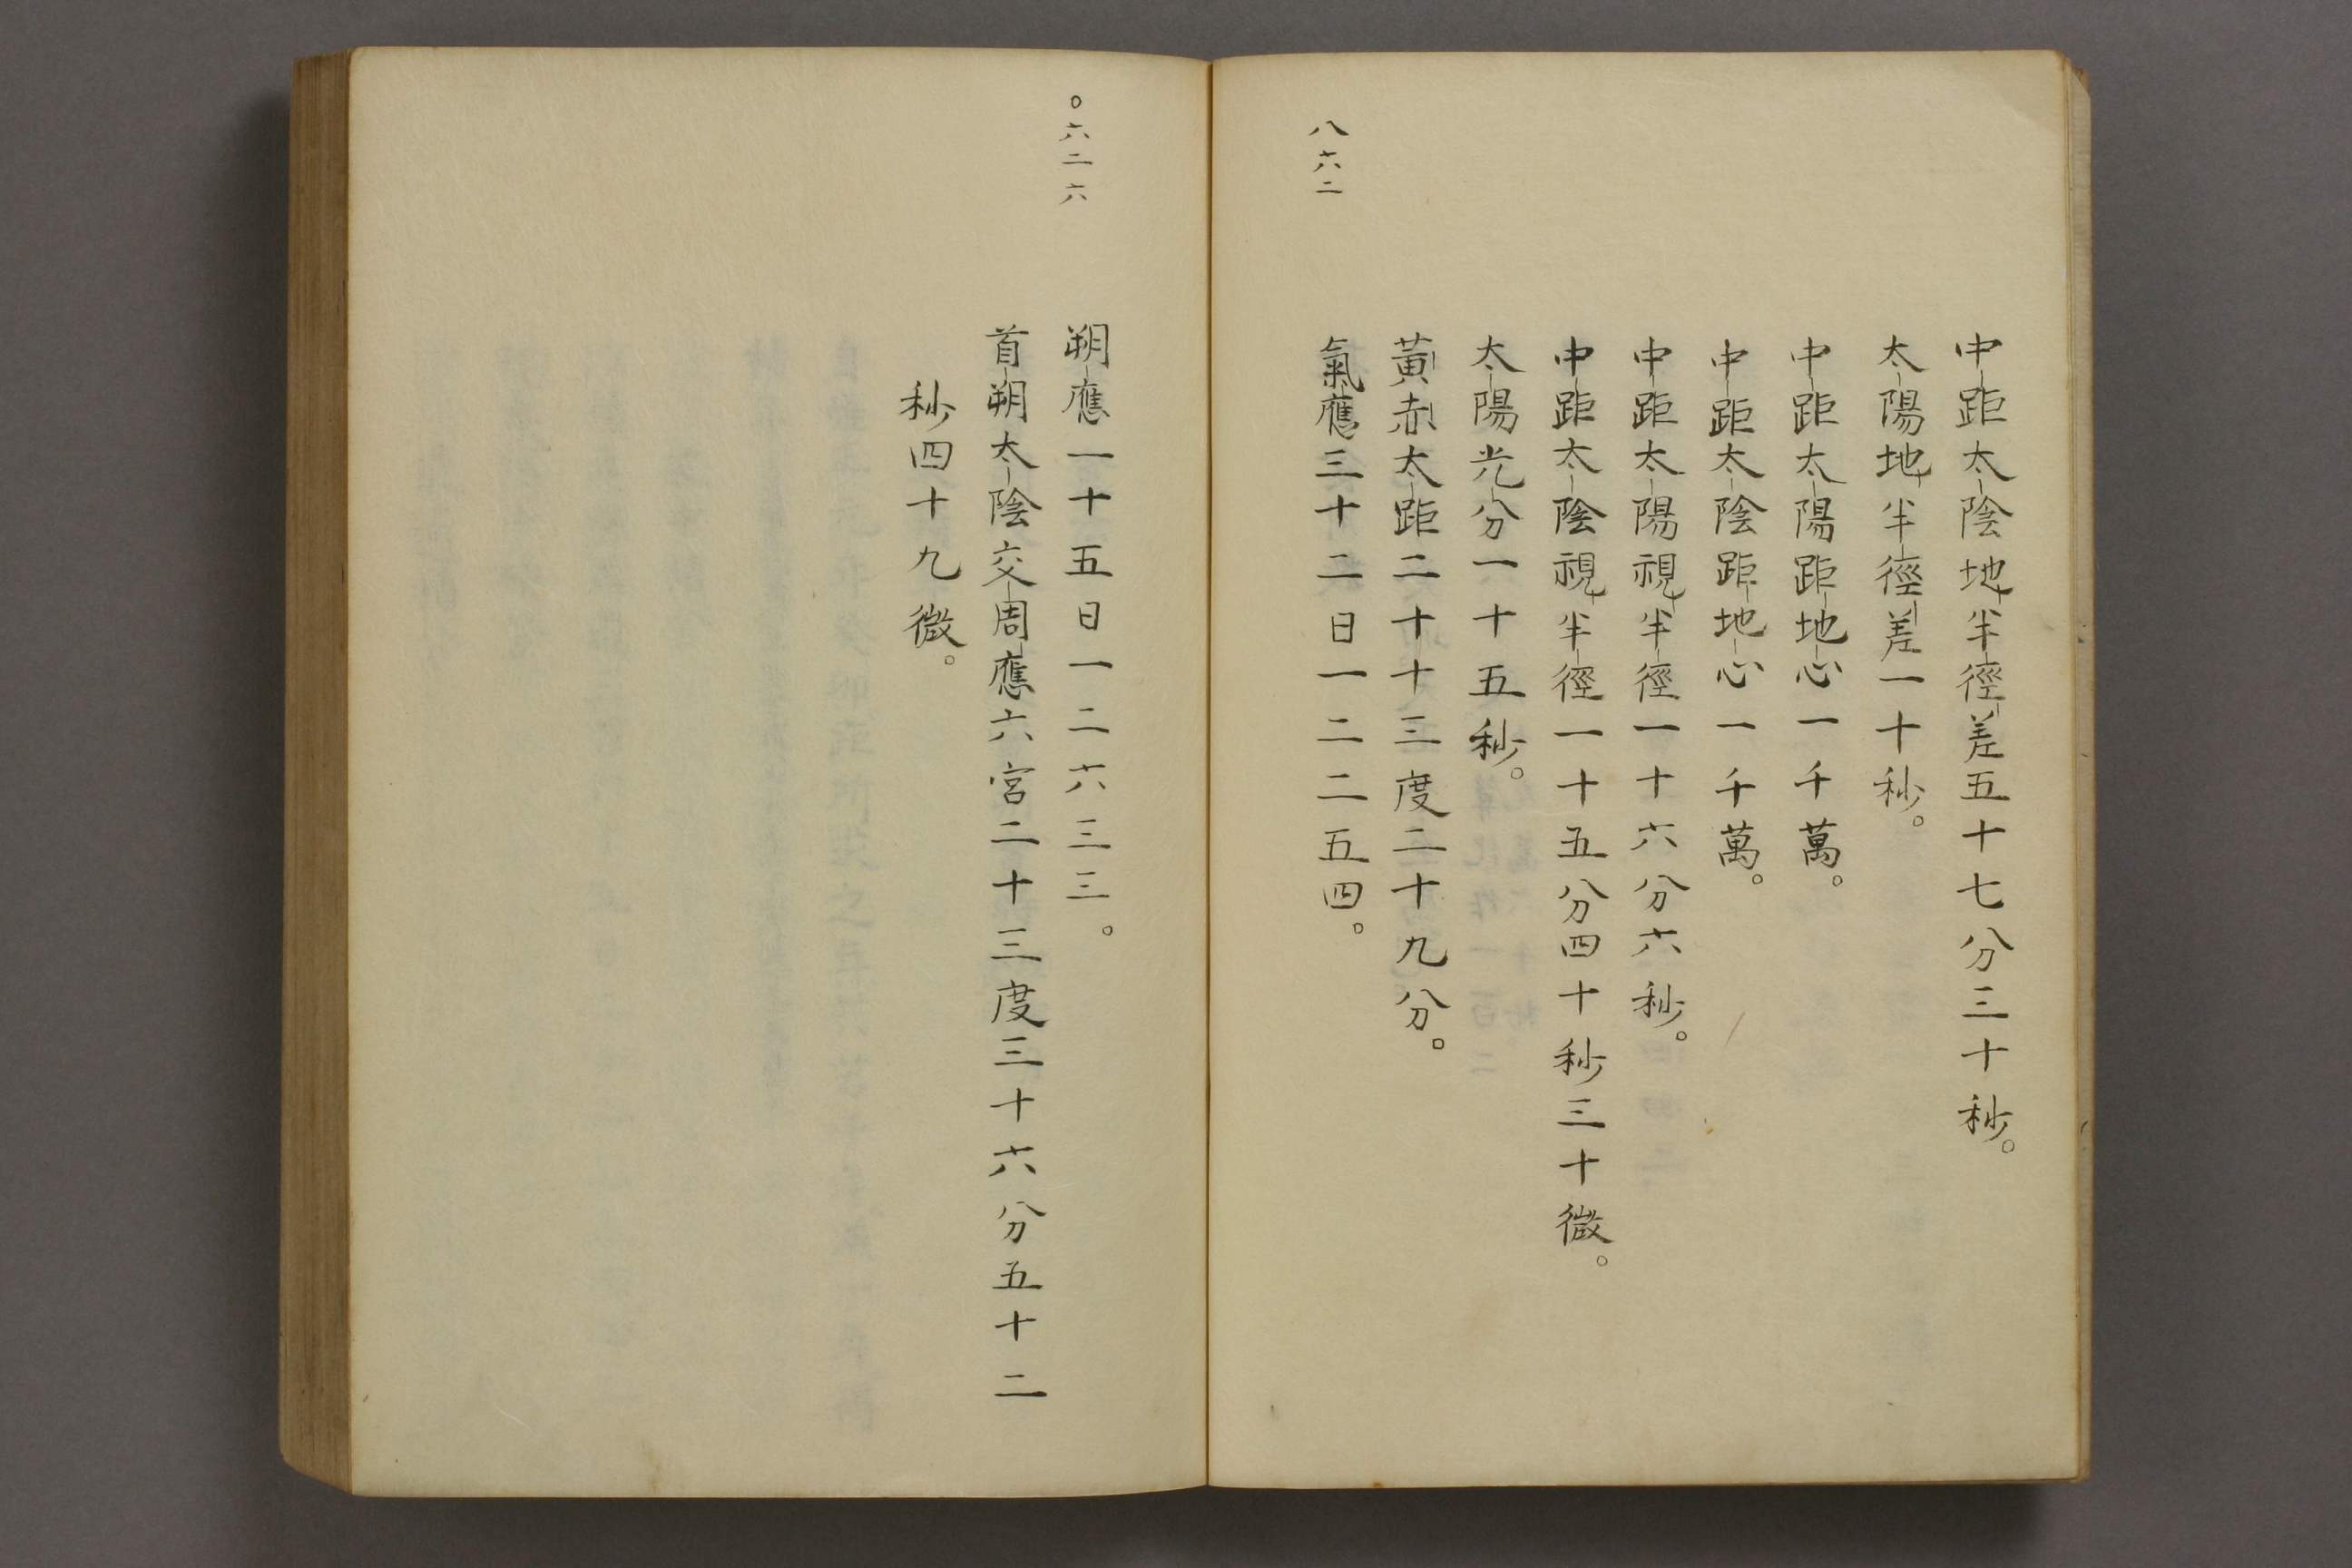 中距太陰地半徑差五十七分三十秒。
太陽地半徑差一十秒。
中距太陽距地心一千萬。
中距太陰距地心一千萬。
中距太陽視半徑一十六分六秒。
中距太陰視半徑一十五分四十秒三十微。
太陽光分一十五秒。
黃赤太距二十十三度二十九分。
氣應三十二日一二二五四。
八六二
朔應一十五日一二六三三。
〇六二六
首朔太陰交周應六宮二十三度三十六分五十二
秒四十九微。